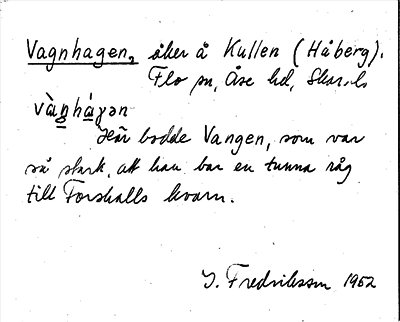 Vagnhagen, åker å Kullen (Håberg).
Flo sn, Åse hd, Skar.l.
vàŋnháɣən
Här bodde Vangen, som var
så stark, att han bar en tunna råg
till Forshalls kvarn.
J. Fredriksson 1952